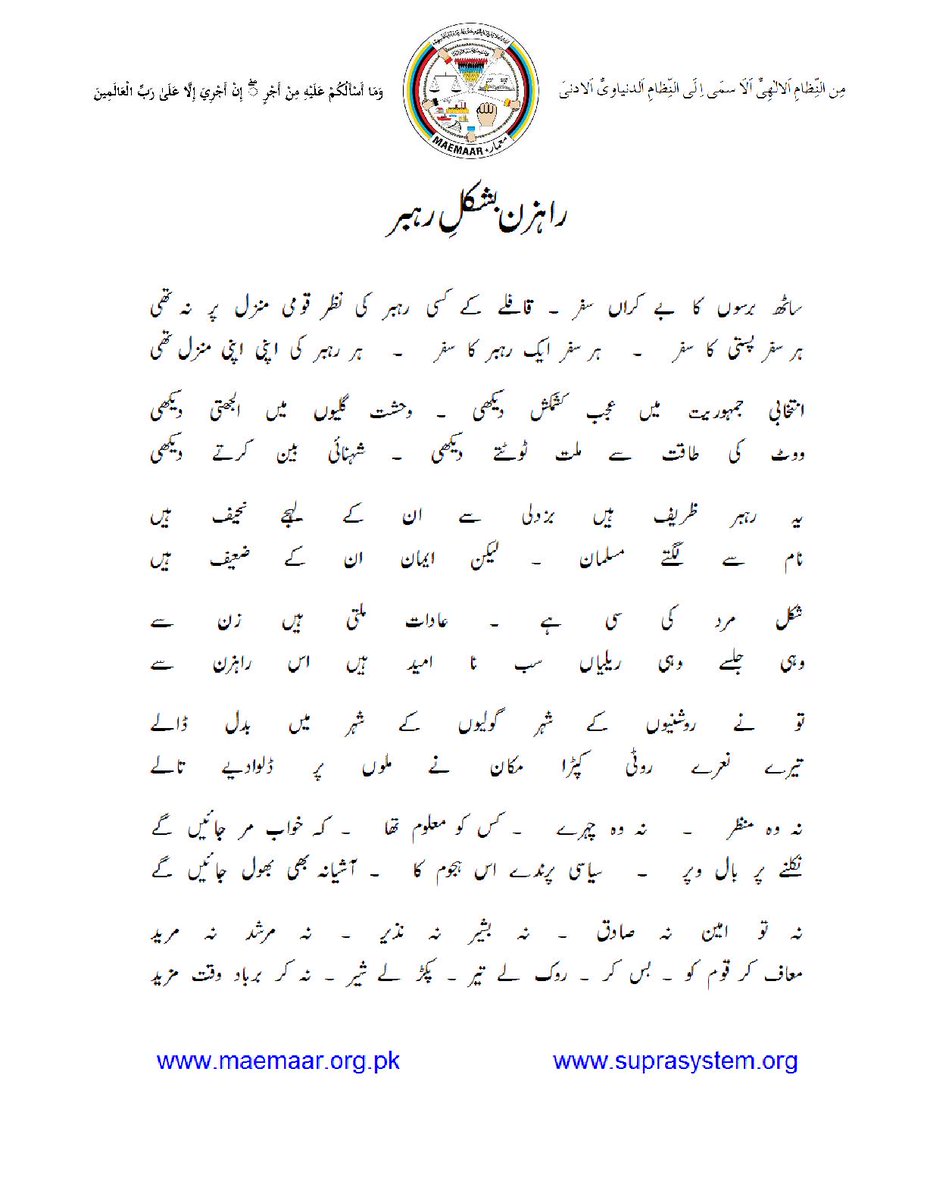 مِن النِّظامِ اَلالٰهِیٌّ اَلاَ سمَی اِلَی النِّظامِ اَلدنیاویٌّ اَلادنیَ
وَمَا أَسْأَلُكُمْ عَلَيْهِ مِنْ أَجْرٍ ۖ إِنْ أَجْرِيَ إِلَّا عَلَىٰ رَبِّ الْعَالَمِينَ
MAEMAAR معمار
راہزن بشکلِ رہبر
ساٹھ برسوں کا بے کراں سفر ۔ قافلے کے کسی رہبر کی نظر قومی منزل پر نہ تھی
ہر سفر پستی کا سفر ۔ ہر سفر ایک رہبر کا سفر ۔ ہر رہبر کی اپنی اپنی منزل تھی
انتخابی جمہوریت میں عجب کشمکش دیکھی ۔ وحشت گلیوں میں الجھتی دیکھی
ووٹ کی طاقت سے ملت ٹوٹتے دیکھی ۔ شہنائی بین کرتے دیکھی
یہ رہبر ظریف ہیں بزدلی سے ان کے لہجے نحیف ہیں
نام سے لگتے مسلمان ۔ لیکن ایمان ان کے ضعیف ہیں
شکل مرد کی سی ہے ۔ عادات ملتی ہیں زن سے
وہی جلسے وہی ریلیاں سب نا امید ہیں اس راہزن سے
تو نے روشنیوں کے شہر گولیوں کے شہر میں بدل ڈالے
تیرے نعرے روٹی کپڑا مکان نے ملوں پر ڈلوادیے تالے
نہ وہ منظر ۔ نہ وہ چہرے ۔ کس کو معلوم تھا ۔ کہ خواب مر جائیں گے
نکلنے پر بال وپر ۔ سیاسی پرندے اس ہجوم کا ۔ آشیانہ بھی بھول جائیں گے
نہ تو امین نہ صادق ۔ نہ بشیر نہ نذیر ۔ نہ مرشد نہ مرید
معاف کر قوم کو ۔ بس کر ۔ روک لے تیر ۔ پکڑ لے شیر ۔ نہ کر برباد وقت مزید
www.maemaar.org.pk www.suprasystem.org